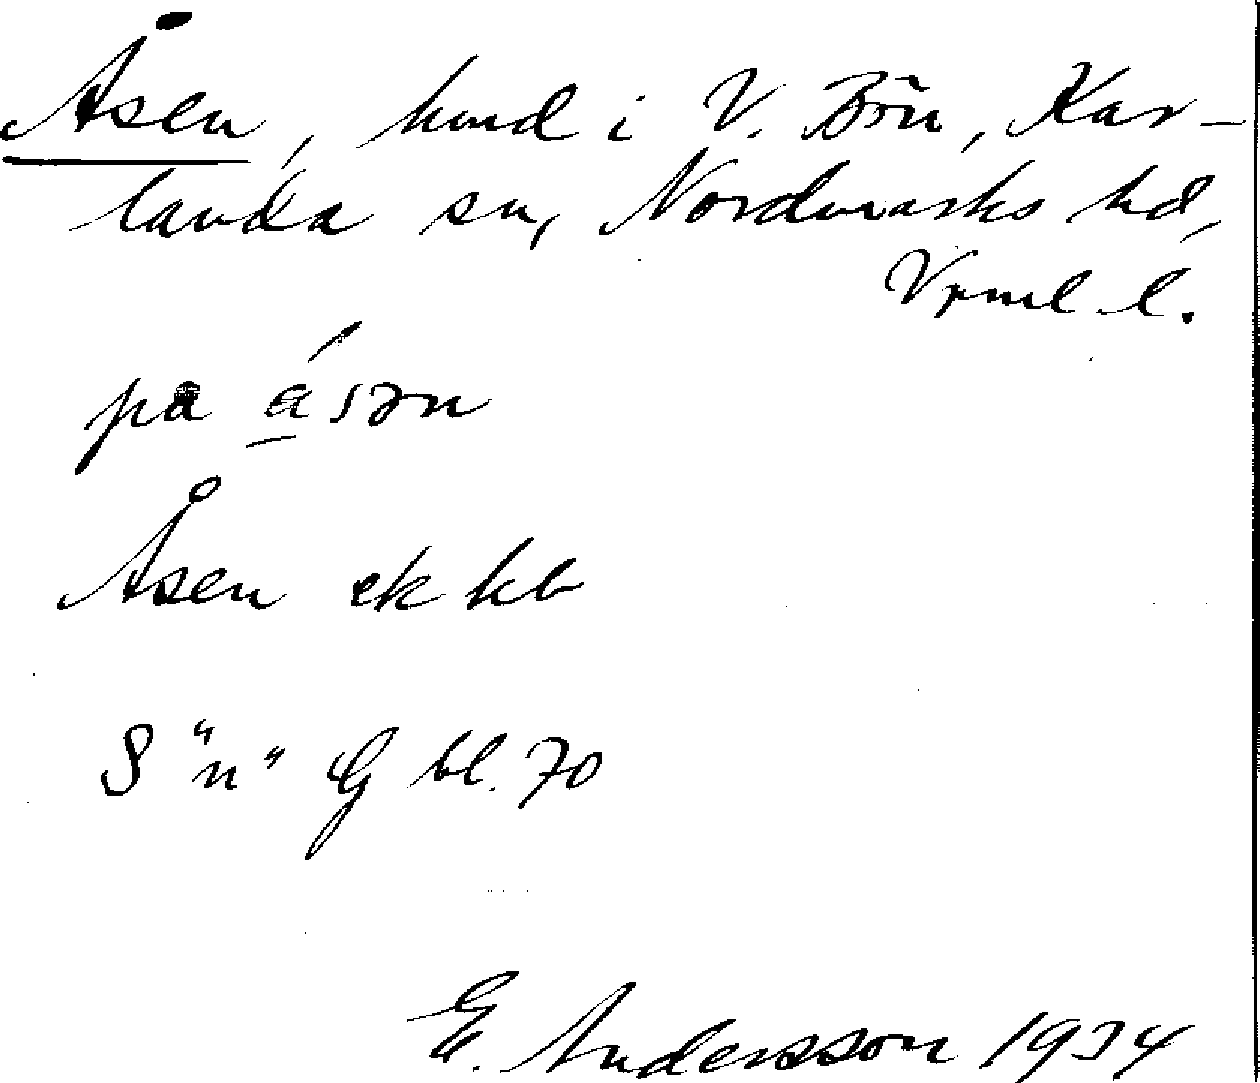 Åsen, hmd i V. Bön, Kar-
landa sn, Nordmarks hd,
Vrml. l.
på åsən
Åsen ek kb
S "n" G bl. 70
E. Andersson 1934